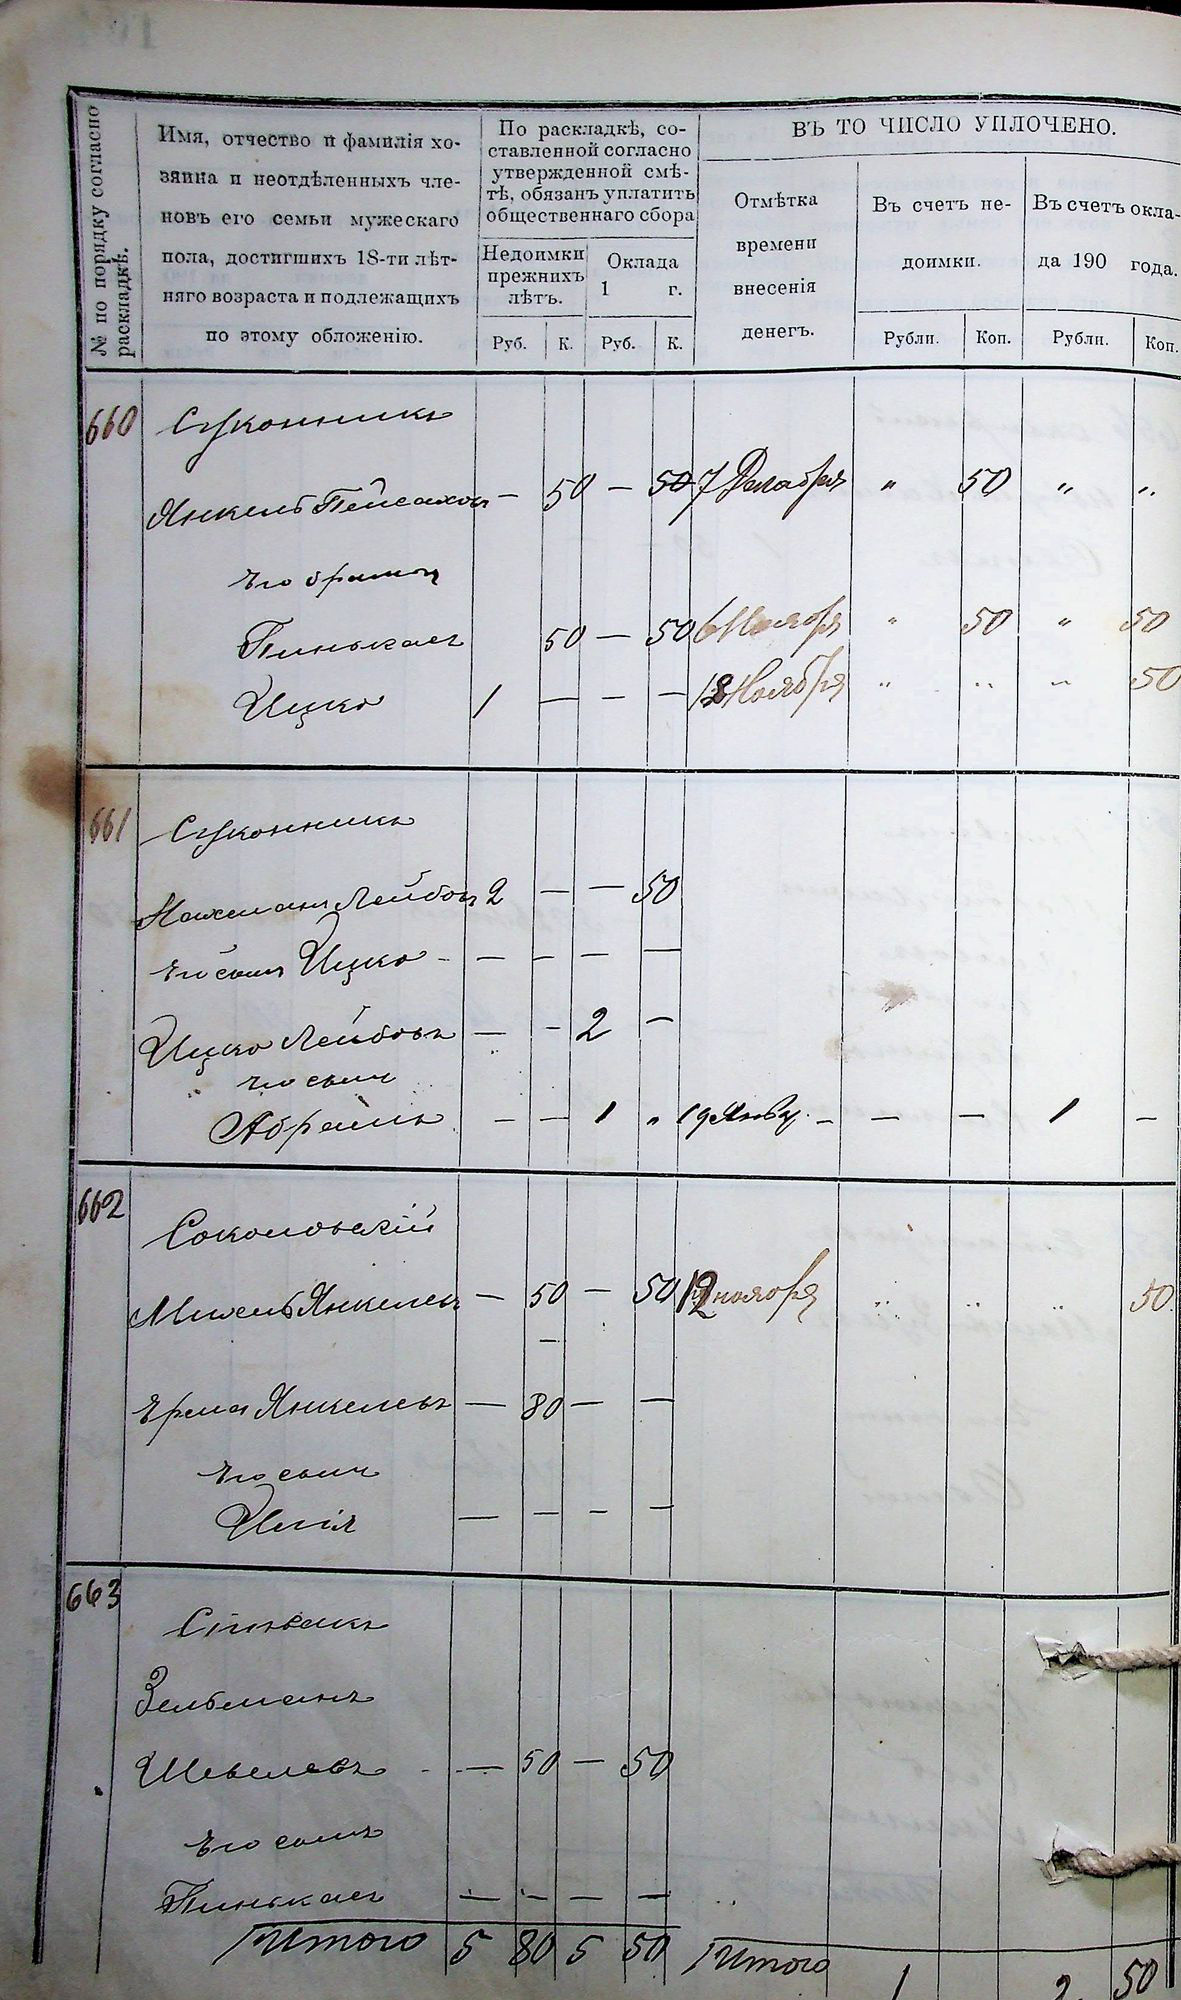 № по порядку согласно раскладкѣ.
Имя, отчество и фамилія хо-
зяина и неотдѣленныхъ чле-
новъ его семьи мужескаго
пола, достигшихъ 18-ти лѣт-
няго возраста и подлежащихъ
по этому обложенію.
По раскладкѣ, со-
ставленной согласно
утвержденной смѣ-
тѣ, обязанъ уплатить
общественнаго сбора
Недоимки
прежнихъ
лѣтъ.
Оклада
1 г.
Руб. К. Руб. К.
ВЪ ТО ЧИСЛО УПЛОЧЕНО.
Отмѣтка
времени
внесенія
денегъ.
Въ счетъ не-
доимки.
Въ счетъ окла-
да 190 года.
Рубли. Коп. Рубли. Коп.
660 Суконникъ
Янкель Пейсахов — 50 — 50 7 Декабря " 50 " "
Его братья
Пинькасъ 50 — 50 6 Ноября " 50 " 50
Ицко 1 — — — 18 Ноября " " " 50
661 Суконникъ
Нахманъ Лейбовъ 2 — — 50
Его сынъ Ицко - — — — —
Ицко Лейбовъ — - 2 —
Его сынъ
Абрамъ — — 1 " 19 Январ. — — — 1 —
662 Соколовскій
Михель Янкелевъ — 50 — 50 12 ноября " " " 50
—
Ерма Янкелевъ — 80 — —
Его сынъ
Ихіл — — — —
663
Спивакъ
Зельманъ
Шевелевъ — 50 — 50
Его сынъ
Пинькасъ — — — —
Итого 5 80 5 50 Итого 1 2 50